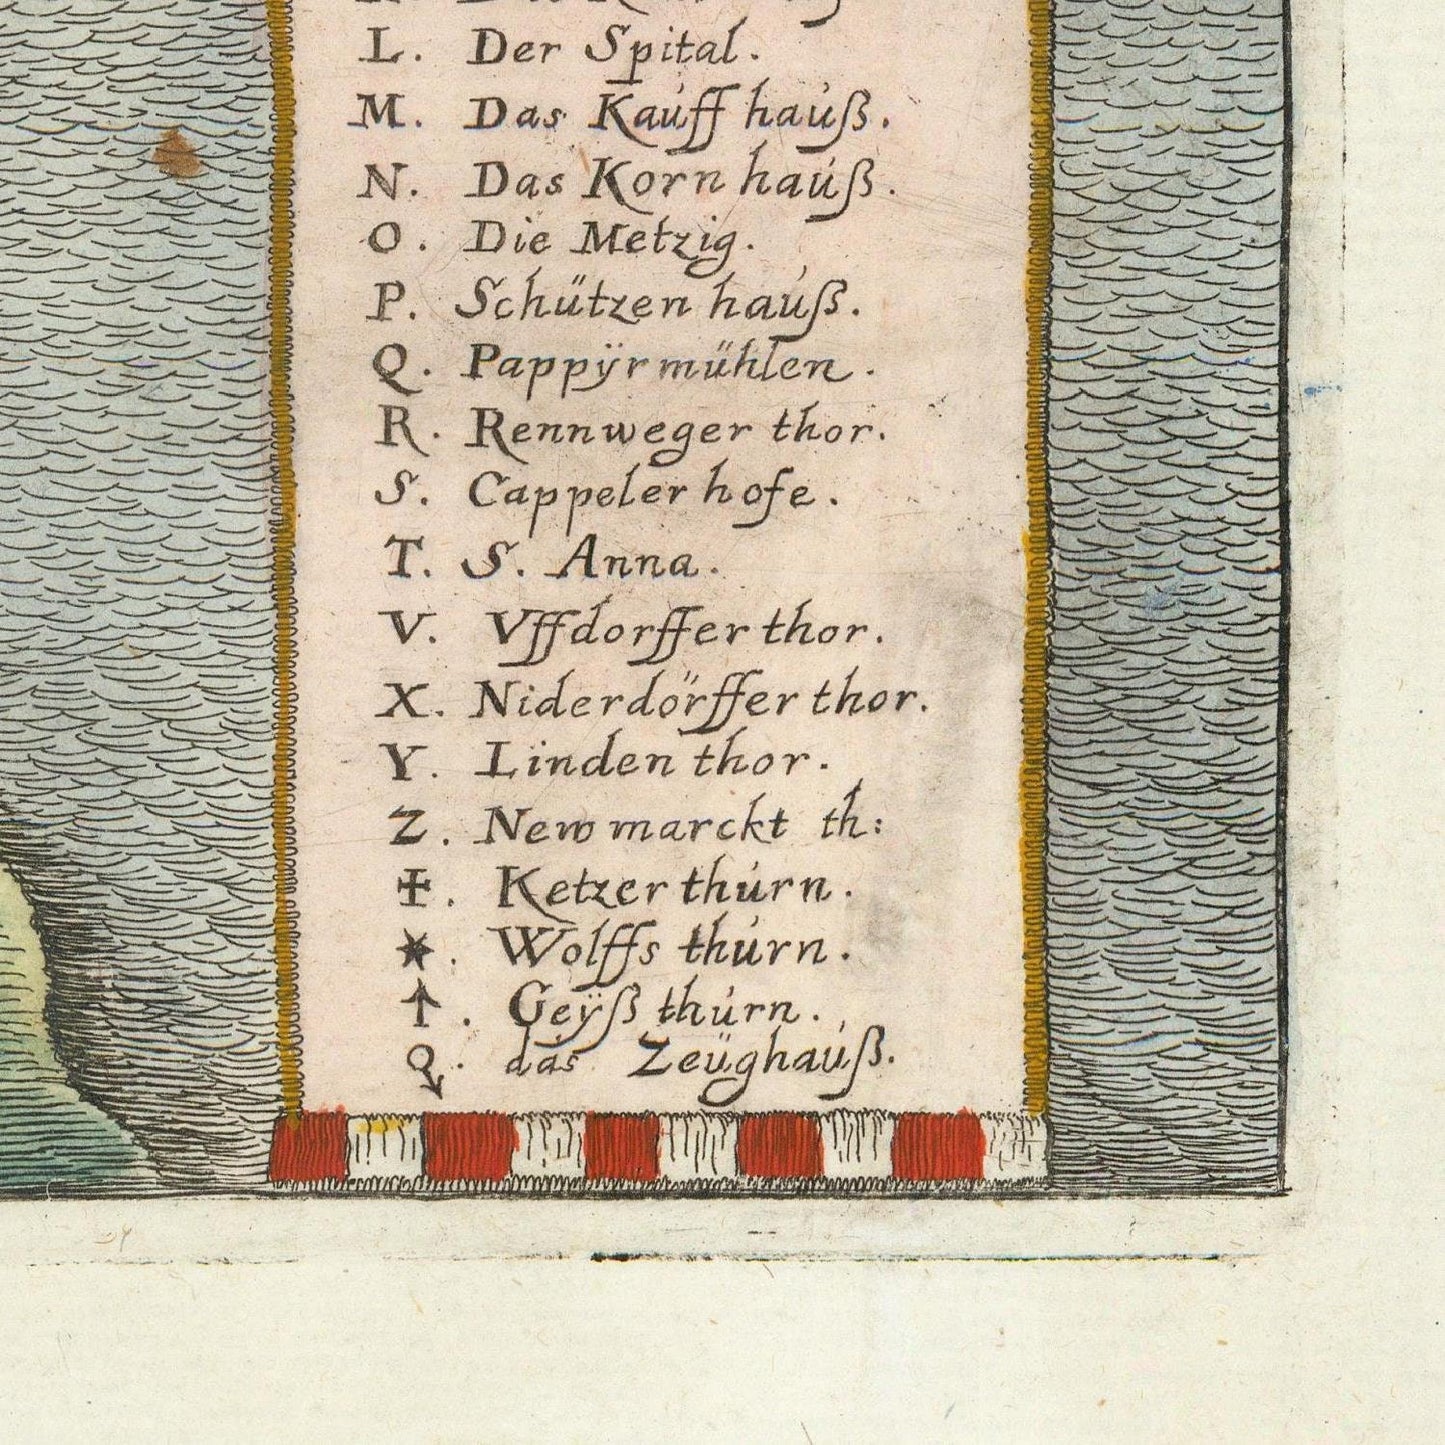 L. Der Spital.
M. Das Kauff hauß.
N. Das Korn hauß.
O. Die Metzig.
P. Schützen hauß.
Q. Pappÿr mühlen.
R. Rennweger thor.
S. Cappeler hofe.
T. S. Anna.
V. Vffdorffer thor.
X. Niderdörffer thor.
Y. Linden thor.
Z. New marckt th:
✠. Ketzer thurn.
✶. Wolffs thurn.
↑. Geÿß thurn.
das Zeüghauß.